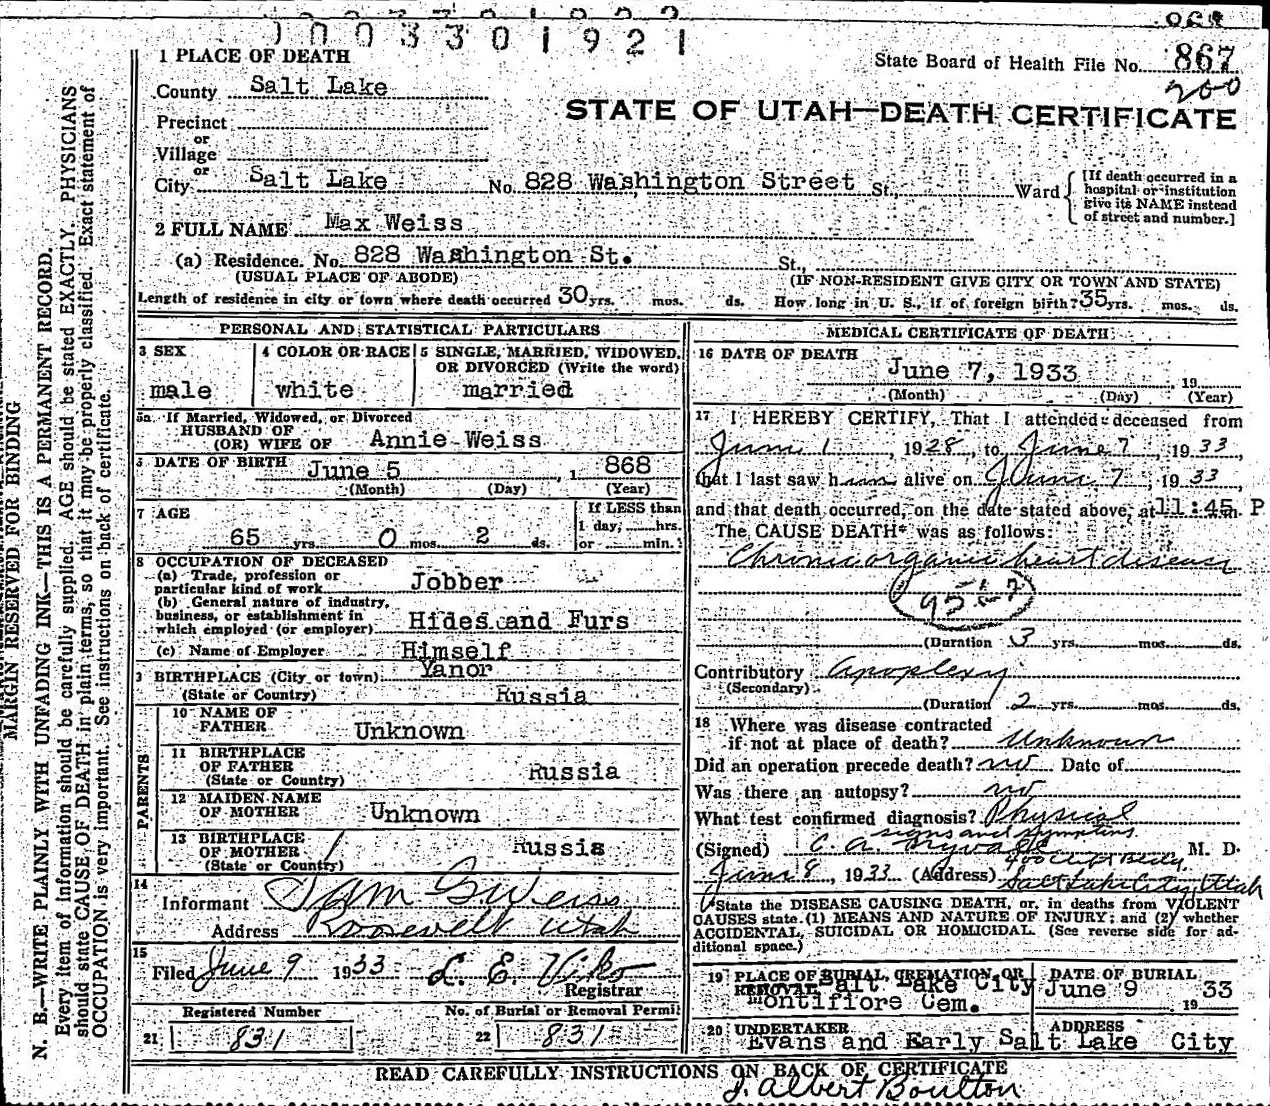 0 0 0 3 3 0 1 9 2 1
1 PLACE OF DEATH
State Board of Health File No. 867
County Salt Lake
200
STATE OF UTAH—DEATH CERTIFICATE
Precinct
or
Village
or
City Salt Lake No. 828 Washington Street St., Ward
[If death occurred in a
hospital or institution
give its NAME instead
of street and number.]
2 FULL NAME Max Weiss
(a) Residence. No. 828 Washington St. St.,
(USUAL PLACE OF ABODE) (IF NON-RESIDENT GIVE CITY OR TOWN AND STATE)
Length of residence in city or town where death occurred 30 yrs. mos. ds. How long in U. S., if of foreign birth? 35 yrs. mos. ds.
PERSONAL AND STATISTICAL PARTICULARS
3 SEX
male
4 COLOR OR RACE
white
5 SINGLE, MARRIED, WIDOWED,
OR DIVORCED (Write the word)
married
5a If Married, Widowed, or Divorced
HUSBAND OF
(OR) WIFE OF Annie Weiss
6 DATE OF BIRTH June 5, 1868
(Month) (Day) (Year)
7 AGE
65 yrs. 0 mos. 2 ds.
If LESS than
1 day, hrs.
or min.
8 OCCUPATION OF DECEASED
(a) Trade, profession or
particular kind of work Jobber
(b) General nature of industry,
business, or establishment in
which employed (or employer) Hides and Furs
(c) Name of Employer Himself
9 BIRTHPLACE (City or town) Yanor
(State or Country) Russia
PARENTS
10 NAME OF
FATHER Unknown
11 BIRTHPLACE
OF FATHER
(State or Country) Russia
12 MAIDEN NAME
OF MOTHER Unknown
13 BIRTHPLACE
OF MOTHER
(State or Country) Russia
14
Informant Sam G Weiss
Address Roosevelt Utah
15
Filed June 9 1933
Registrar
Registered Number
21 831
No. of Burial or Removal Permit
22 831
MEDICAL CERTIFICATE OF DEATH
16 DATE OF DEATH
June 7, 1933, 19
(Month) (Day) (Year)
17 I HEREBY CERTIFY, That I attended deceased from
June 1, 1928, to June 7, 1933,
that I last saw him alive on June 7, 1933,
and that death occurred, on the date stated above, at 11:45 m. P
The CAUSE DEATH* was as follows:
Chronic organic heart disease
95
(Duration 3 yrs. mos. ds.
Contributory Apoplexy
(Secondary)
(Duration 2 yrs. mos. ds.
18 Where was disease contracted
if not at place of death? Unknown
Did an operation precede death? no Date of
Was there an autopsy? no
What test confirmed diagnosis? Physical
signs and symptoms
(Signed) C. A. M. D.
June 8, 1933 (Address)
Salt Lake City, Utah
*State the DISEASE CAUSING DEATH, or, in deaths from VIOLENT
CAUSES state (1) MEANS AND NATURE OF INJURY; and (2) whether
ACCIDENTAL, SUICIDAL OR HOMICIDAL. (See reverse side for ad-
ditional space.)
19 PLACE OF BURIAL, CREMATION, OR
REMOVAL Salt Lake City
Montifiore Cem.
DATE OF BURIAL
June 9 1933
20 UNDERTAKER
Evans and Early
ADDRESS
Salt Lake City
READ CAREFULLY INSTRUCTIONS ON BACK OF CERTIFICATE
J. Albert Boulton
MARGIN RESERVED FOR BINDING
N. B.—WRITE PLAINLY WITH UNFADING INK—THIS IS A PERMANENT RECORD.
Every item of information should be carefully supplied. AGE should be stated EXACTLY. PHYSICIANS
should state CAUSE OF DEATH in plain terms, so that it may be properly classified. Exact statement of
OCCUPATION is very important. See instructions on back of certificate.